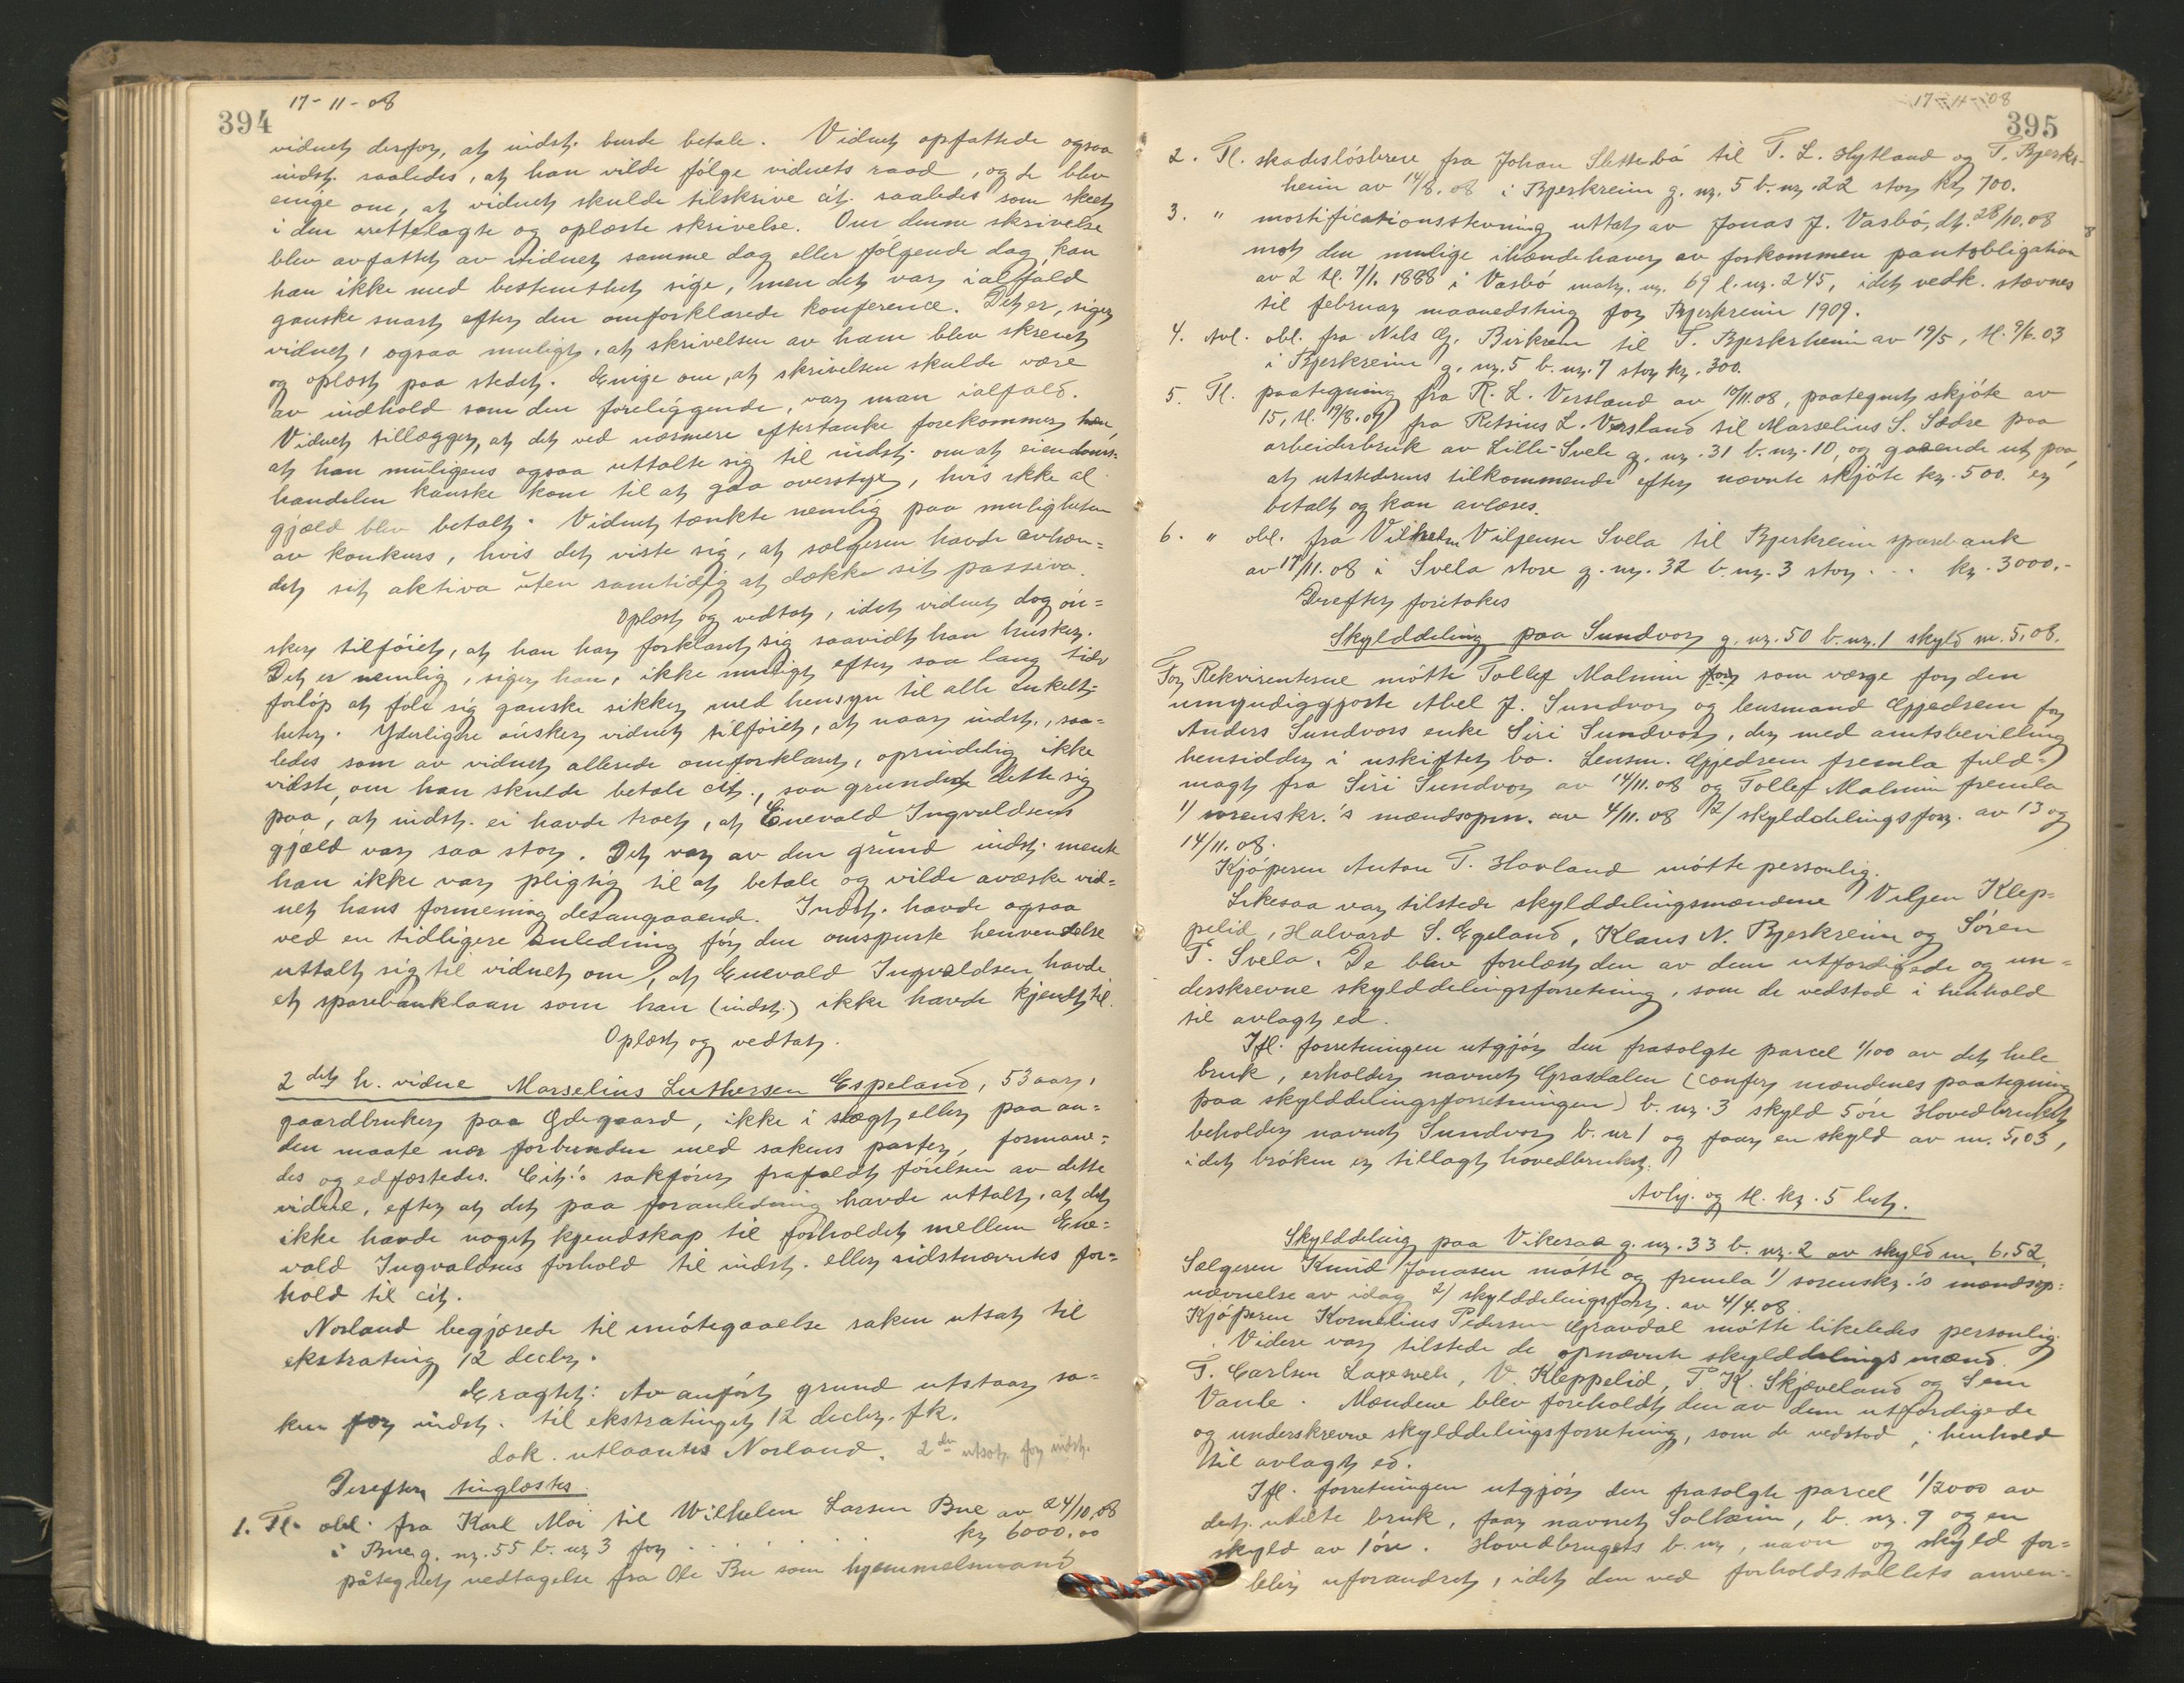 394
17-11-08
vidnet derfor, at indst. burde betale. Vidnet opfattede ogsaa
indst. saaledes, at han vilde følge vidnets raad, og de blev
enige om, at vidnet skulde tilskrive cit. saaledes som skeet
i den rettelagte og oplæste skrivelse. Om denne skrivelse
blev avfattet av vidnet samme dag eller følgende dag, kan
han ikke med bestemthet sige, men det var ialfald
ganske snart efter den omforklarede konference. Det er, siger
vidnet, ogsaa muligt, at skrivelsen av ham blev skrevet
og oplæst paa stedet. Enige om, at skrivelsen skulde være
av indhold som den foreliggende, var man ialfald.
Vidnet tillægger, at det ved nærmere eftertanke forekommer ham,
at han muligens ogsaa uttalte sig til indst. om at eiendoms-
handelen kanske kom til at gaa overstyr, hvis ikke al
gjæld blev betalt. Vidnet tænkte nemlig paa muligheten
av konkurs, hvis det viste sig, at sælgeren havde avhæn=
det sit aktiva uten samtidig at dække sit passiva.
Oplæst og vedtat, idet vidnet dog øn=
sker tilføiet, at han har forklaret sig saavidt han husker.
Det er nemlig, siger han, ikke muligt efter saa lang tids
forløp at føle sig ganske sikker med hensyn til alle enkelt=
heter. Yderligere ønsker vidnet tilføiet, at naar indst., saa=
ledes som av vidnet allerede omforklaret, oprindelig ikke
vidste, om han skulde betale cit., saa grundede dette sig
paa, at indst. ei havde troet, at Enevald Ingvaldsens
gjæld var saa stor. Det var av den grund indst. mente
han ikke var pligtig til at betale og vilde avæske vid=
net hans formening desangaaende. Indst. havde ogsaa
ved en tidligere anledning før den omspurte henvendelse
uttalt sig til vidnet om, at Enevald Ingvaldsen havde
et sparebanklaan som han (indst.) ikke havde kjendt til.
Oplæst og vedtat.
2det h. vidne Marselius Luthersen Espeland, 53 aar,
gaardbruker paa Ødegaard, ikke i slægt eller paa an=
den maate nær forbunden med sakens parter, formane=
des og edfæstedes. Cit.'s sakfører frafaldt førelsen av dette
vidne, efter at det paa foranledning havde uttalt, at det
ikke havde noget kjendskap til forholdet mellem Ene=
vald Ingvaldsens forhold til indst. eller sidstnævntes for=
hold til cit.
Norland begjærede til imøtegaaelse saken utsat til
ekstrating 12 decbr.
Eragtet: Av anført grund utstaar sa=
ken for indst. til ekstratinget 12 decbr. fk.
dok. utlaantes Norland. 2den utsæt. for indst.
Derefter tinglæstes
1. Tl. obl. fra Karl Moi til Wilhelm Larsen Bue av 24/10.08
i Bue g. nr. 55 b. nr 3 for . . . . kr 6000.00
påtegnet vedtagelse fra Ole Bu som hjemmelsmand
17-11-08
395
2. Tl. skadesløsbrev fra Johan Slettebø til T. L. Hytland og T. Bjerks-
heim av 14/8.08 i Bjerkreim g. nr. 5 b. nr. 22 stor kr 700.
3. " mortificationsstevning uttat av Jonas J. Vasbø, dt. 28/10.08
mot den mulige ihændehaver av forkommen pantobligation
av 2 tl. 7/1. 1888 i Vasbø matr. nr. 69 l. nr. 245, idet vedk. stævnes
til februar maanedsting for Bjerkreim 1909.
4. Avl. obl. fra Nils G. Birkrem til T. Bjerksheim av 19/5, tl. 9/6.03
i Bjerkreim g. nr. 5 b. nr. 7 stor kr. 300.
5. Tl. paategning fra R. L. Versland av 10/11.08, paategnet skjøte av
15, tl. 19/8.07 fra Retsius L. Versland til Marselius S. Sædre paa
arbeidsbruk av Lille-Svele g. nr. 31 b. nr. 10, og gaaende ut paa,
at utstederens tilkommende efter nævnte skjøte kr. 500. er
betalt og kan avlæses.
6. " obl. fra Vilhelm Viljensen Svela til Bjerkreim sparebank
av 17/11.08 i Svela store g. nr. 32 b. nr. 3 stor . . . kr. 3000.-
Derefter foretokes
Skylddeling paa Sundvor g. nr. 50 b. nr. 1 skyld m. 5,08.
For Rekvirenterne møtte Tollef Malmin som værge for den
umyndiggjorte Abel J. Sundvor og lensmand Gjedrem for
Anders Sundvors enke Siri Sundvor, der med amtsbevilling
hensidder i uskiftet bo. Lensm. Gjedrem fremla fuld=
magt fra Siri Sundvor av 14/11.08 og Tollef Malmin fremla
1/ sorenskr.'s mændsopn. av 4/11.08 2/ skylddelingsforr. av 13 og
14/11.08.
Kjøperen Anton T. Hovland møtte personlig.
Likesaa var tilstede skylddelingsmændene Viljen Klep=
pelid, Halvard S. Egeland, Klaus N. Bjerkreim og Søren
T. Svela. De blev forelæst den av dem utfærdigede og un=
derskrevne skylddelingsforretning, som de vedstod i henhold
til avlagt ed.
Ifl. forretningen utgjør den frasolgte parcel 1/100 av det hele
bruk, erholder navnet Grasdalen (confer mændenes paategning
paa skylddelingsforretningen) b. nr. 3 skyld 5 øre Hovedbruket
beholder navnet Sundvor b. nr 1 og faar en skyld av m. 5,03,
idet brøken er tillagt hovedbruket.
Avhj. og tl. kr. 5 bet.
Skylddeling paa Vikesaa g. nr. 33 b. nr. 2 av skyld m. 6,52.
Sælgeren Knud Jonasen møtte og fremla 1/ sorenskr.'s mændsop=
nævnelse av idag 2/ skylddelingsforr. av 4/4.08.
Kjøperen Kornelius Pedersen Gravdal møtte likeledes personlig.
Videre var tilstede de opnævnte skylddelingsmænd.
T. Carlsen Laxesvele, V. Kleppelid, T. K. Skjæveland og Sem
Vande. Mændene blev foreholdt den av dem utfærdigede
og underskrevne skylddelingsforretning, som de vedstod i henhold
til avlagt ed.
Ifl. forretningen utgjør den frasolgte parcel 1/2000 av
det utdelte bruk, faar navnet Solheim, b. nr. 9 og en
skyld av 1 øre. Hovedbrugets b. nr, navn og skyld for=
bliv uforandret, idet den ved forholdstallets anven=